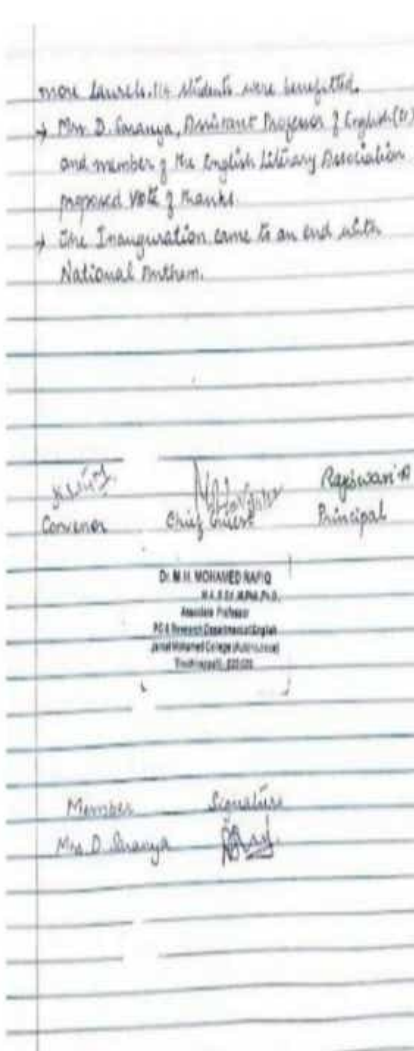 more laurels. 114 students were benefitted.
→ Mrs. D. Saranya, Assistant Professor of English(Sr)
and member of the English Literary Association
proposed Vote of thanks.
→ The Inauguration came to an end with
National Anthem.
Convenor Chief Guest Rajeswari Principal
Dr. M.H. MOHAMED RAFIQ
M.A., B.Ed., M.Phil., Ph.D.,
Associate Professor
PG & Research Department of English
Jamal Mohamed College (Autonomous)
Tiruchirappalli - 620 020
Member Signature
Mrs. D. Saranya